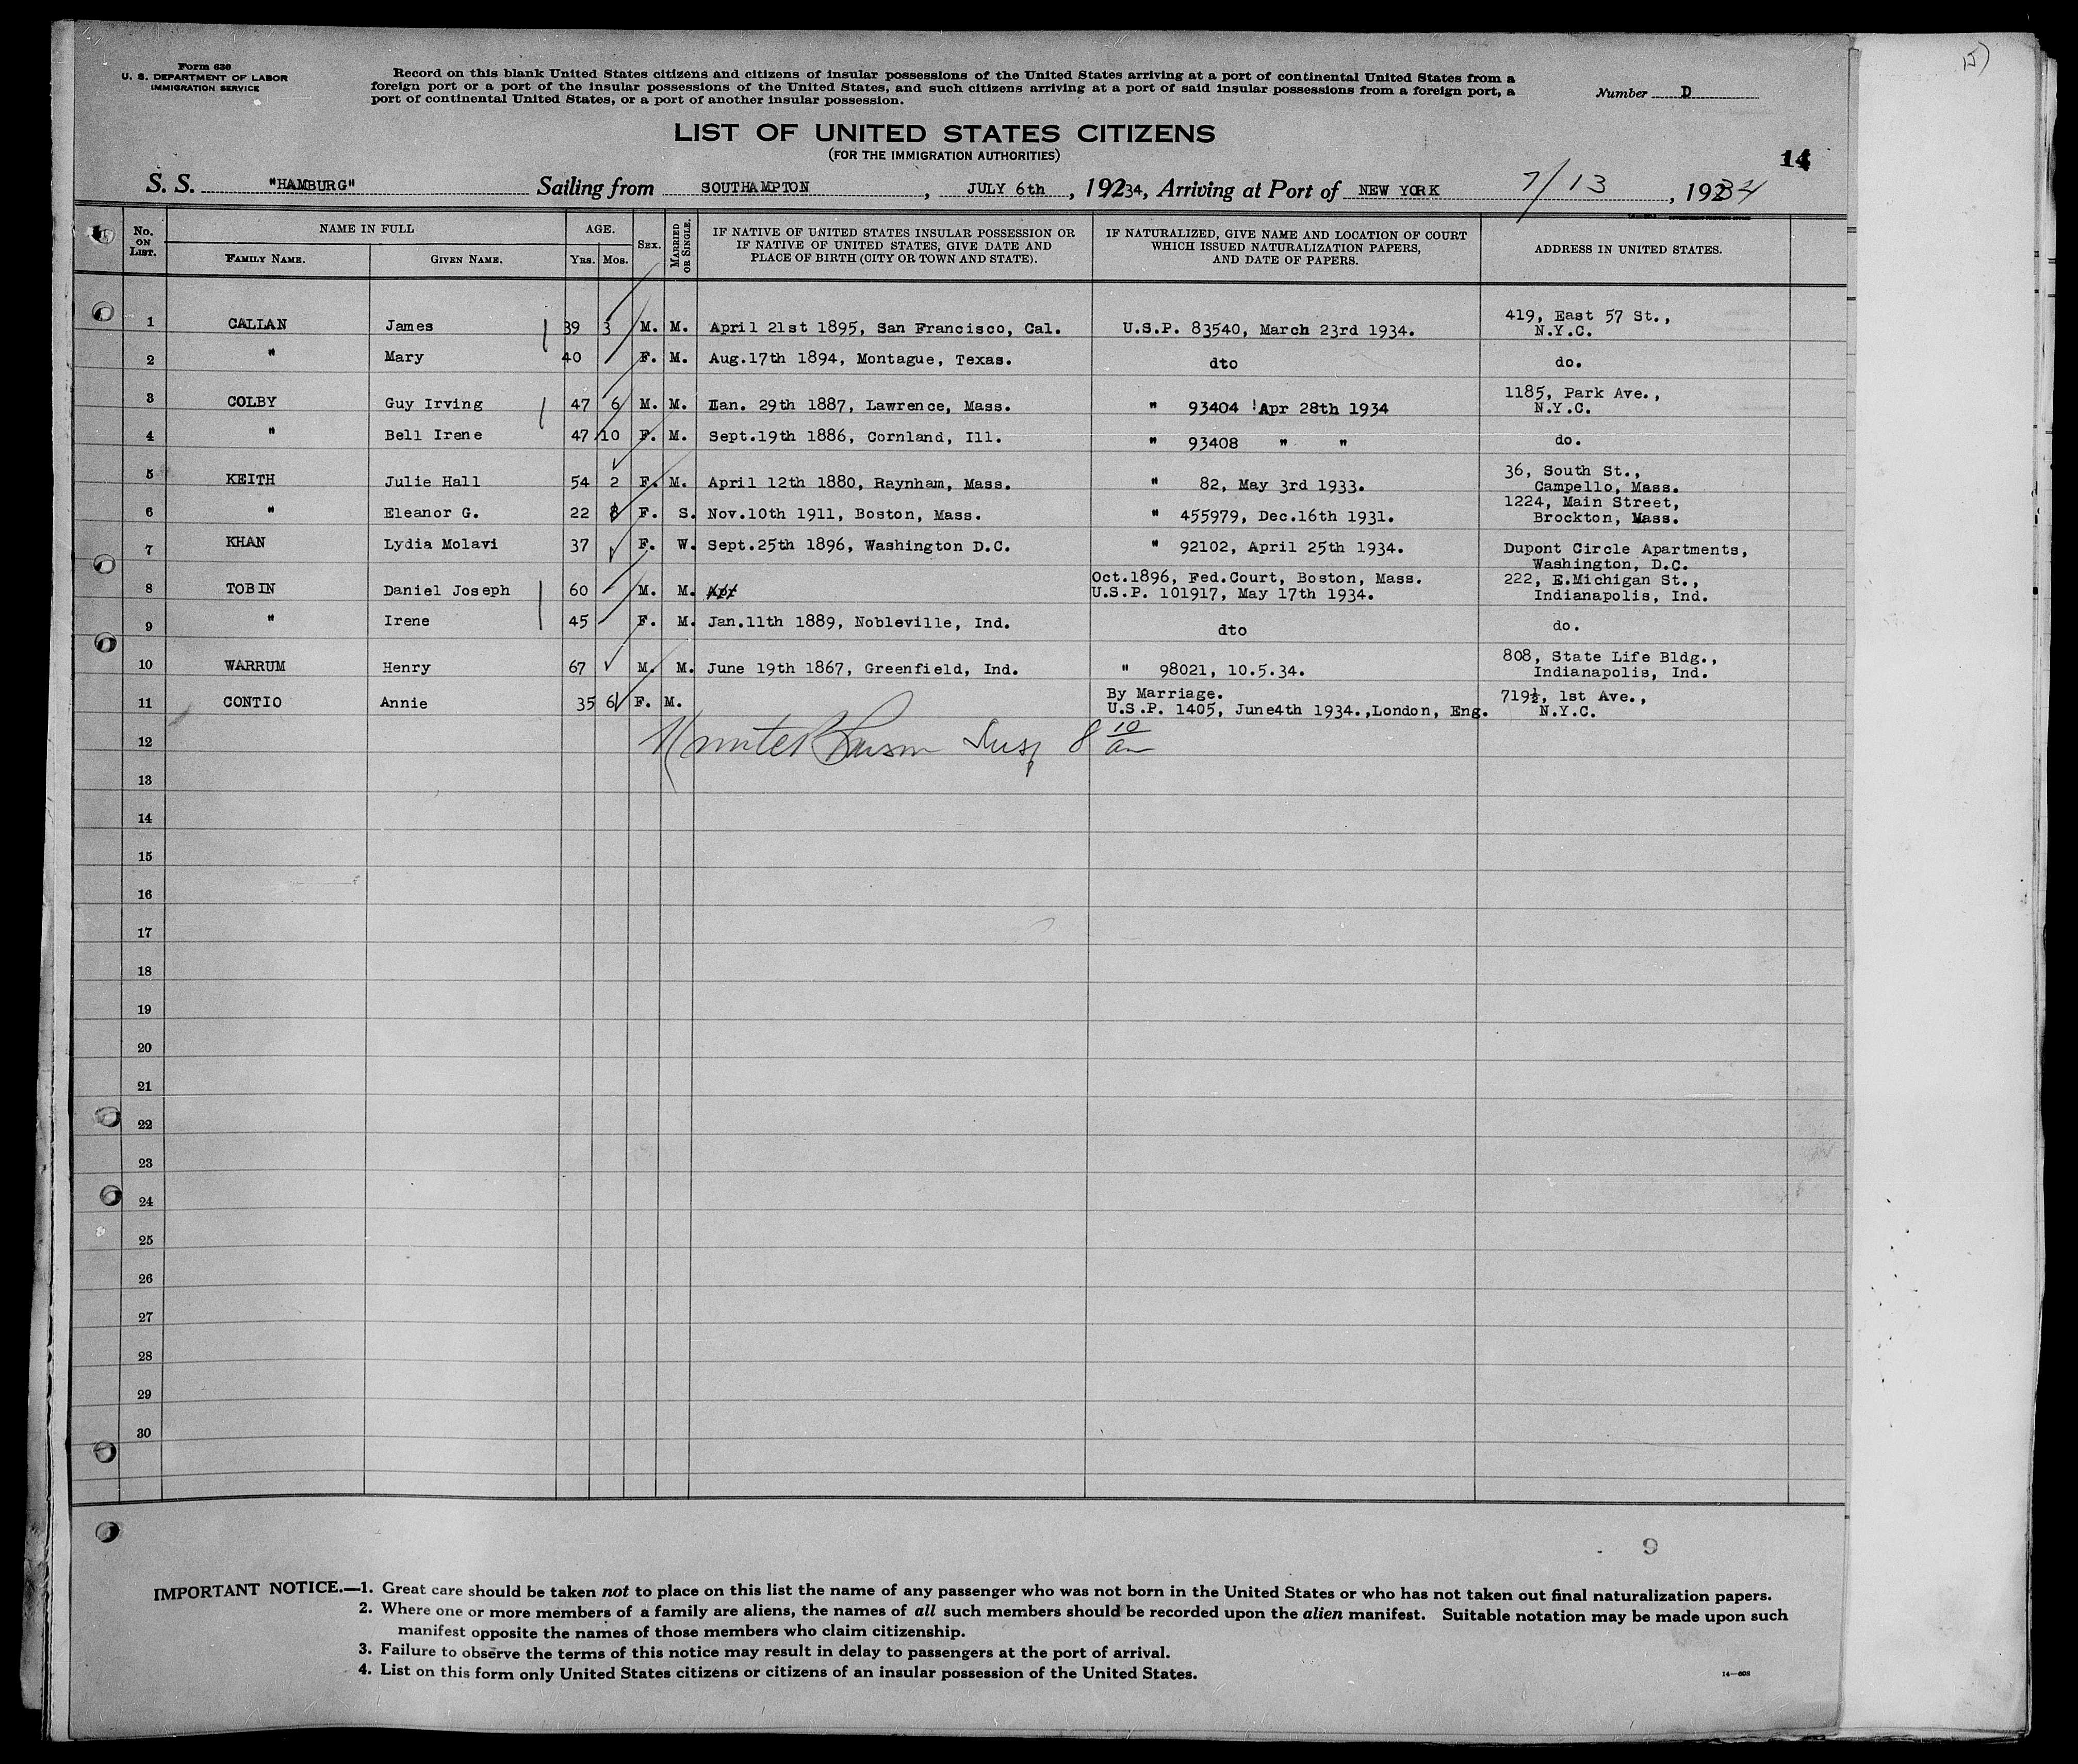 Form 630
U. S. DEPARTMENT OF LABOR
IMMIGRATION SERVICE
Record on this blank United States citizens and citizens of insular possessions of the United States arriving at a port of continental United States from a
foreign port or a port of the insular possessions of the United States, and such citizens arriving at a port of said insular possessions from a foreign port, a
port of continental United States, or a port of another insular possession.
Number D
15)
LIST OF UNITED STATES CITIZENS
(FOR THE IMMIGRATION AUTHORITIES)
14
S. S. "HAMBURG" Sailing from SOUTHAMPTON, JULY 6th, 19234, Arriving at Port of NEW YORK 7/13, 19234
No. ON LIST. NAME IN FULL AGE. SEX. MARRIED OR SINGLE. IF NATIVE OF UNITED STATES INSULAR POSSESSION OR IF NATIVE OF UNITED STATES, GIVE DATE AND PLACE OF BIRTH (CITY OR TOWN AND STATE). IF NATURALIZED, GIVE NAME AND LOCATION OF COURT WHICH ISSUED NATURALIZATION PAPERS, AND DATE OF PAPERS. ADDRESS IN UNITED STATES.
FAMILY NAME. GIVEN NAME. YRS. MOS.
1 CALLAN James 39 3 M. M. April 21st 1895, San Francisco, Cal. U.S.P. 83540, March 23rd 1934. 419, East 57 St., N.Y.C.
2 " Mary 40 F. M. Aug.17th 1894, Montague, Texas. dto do.
3 COLBY Guy Irving 47 6 M. M. Jan. 29th 1887, Lawrence, Mass. " 93404 Apr 28th 1934 1185, Park Ave., N.Y.C.
4 " Bell Irene 47 10 F. M. Sept.19th 1886, Cornland, Ill. " 93408 " " do.
5 KEITH Julie Hall 54 2 F. M. April 12th 1880, Raynham, Mass. " 82, May 3rd 1933. 36, South St., Campello, Mass.
6 " Eleanor G. 22 8 F. S. Nov.10th 1911, Boston, Mass. " 455979, Dec.16th 1931. 1224, Main Street, Brockton, Mass.
7 KHAN Lydia Molavi 37 F. W. Sept.25th 1896, Washington D.C. " 92102, April 25th 1934. Dupont Circle Apartments, Washington, D.C.
8 TOBIN Daniel Joseph 60 M. M. Oct.1896, Fed.Court, Boston, Mass. U.S.P. 101917, May 17th 1934. 222, E.Michigan St., Indianapolis, Ind.
9 " Irene 45 F. M. Jan.11th 1889, Nobleville, Ind. dto do.
10 WARRUM Henry 67 M. M. June 19th 1867, Greenfield, Ind. " 98021, 10.5.34. 808, State Life Bldg., Indianapolis, Ind.
11 CONTIO Annie 35 6 F. M. By Marriage. U.S.P. 1405, June4th 1934.,London, Eng. 719½, 1st Ave., N.Y.C.
12 Insp 8 10 am
13
14
15
16
17
18
19
20
21
22
23
24
25
26
27
28
29
30
9
IMPORTANT NOTICE.—1. Great care should be taken not to place on this list the name of any passenger who was not born in the United States or who has not taken out final naturalization papers.
2. Where one or more members of a family are aliens, the names of all such members should be recorded upon the alien manifest. Suitable notation may be made upon such
manifest opposite the names of those members who claim citizenship.
3. Failure to observe the terms of this notice may result in delay to passengers at the port of arrival.
4. List on this form only United States citizens or citizens of an insular possession of the United States.
14—608